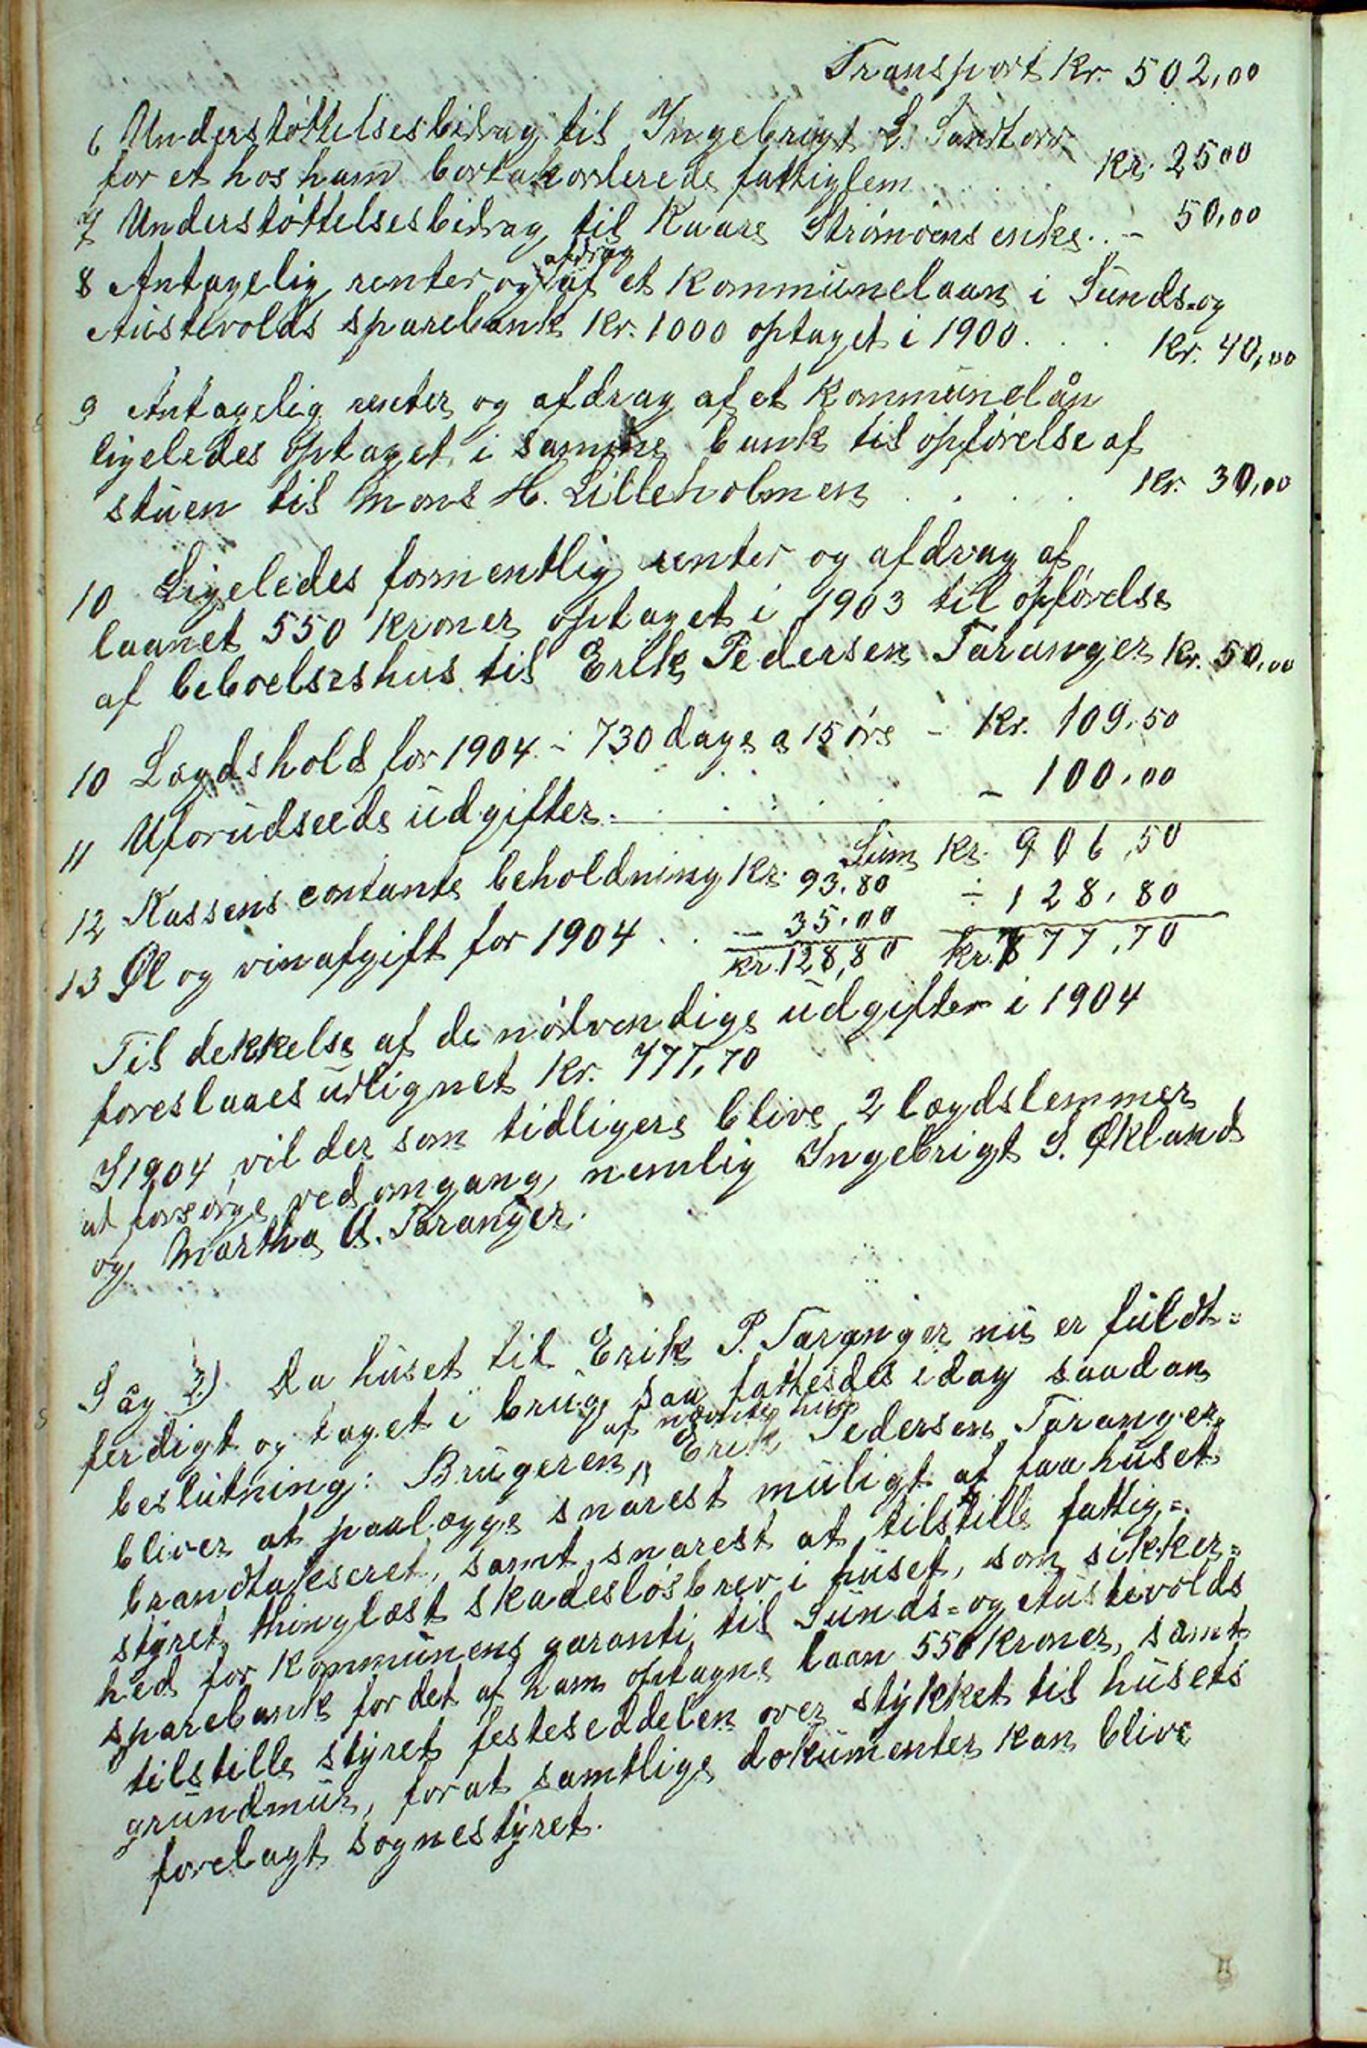 Transport Kr. 502,00
6 Understøttelsesbidrag til Ingebrigt L. Sandtorv
for et hos ham bortakorderede fattiglem . . . Kr. 25 00
7 Understøttelsesbidrag til Kaare Strømøens enke . . – 50,00
8 Antagelig renter og afdrag af et kommunelaan i Sunds- og
Austevolds sparebank Kr. 1000 optaget i 1900 . . . Kr. 40,00
9 Antagelig renter og afdrag af et kommunelån
ligeledes optaget i samme bank til opførelse af
stuen til Mons H. Lilleholmen . . . . Kr. 30,00
10 Ligeledes formentlig renter og afdrag af
laanet 550 kroner optaget i 1903 til opførelse
af beboelseshus til Erik Pedersen Taranger Kr. 50,00
10 Lægdshold for 1904 – 730 dage a 15 øre – Kr. 109,50
11 Uforudseede udgifter . . . . . – 100,00
Sum Kr. 906,50
12 Kassens contante beholdning Kr. 93,80 ÷ 128,80
13 Øl og vinafgift for 1904 . . – 35,00
Kr. 128,80 Kr. 777,70
Til dekkelse af de nødvendige udgifter i 1904
foreslaaes udlignet Kr. 777,70
I 1904 vil der som tidligere blive 2 lægdslemmer
at forsørge ved omgang, nemlig Ingebrigt S. Økland
og Martha A. Taranger.
Sag 3) Da huset til Erik P. Taranger nu er fuldt=
ferdigt og taget i brug, saa fattedes idag saadan
beslutning: Brugeren af nævnte hus Erik Pedersen Taranger
bliver at paalægge snarest muligt at faa huset
brandtakseret, samt snarest at tilstille fattig=
styret thinglæst skadesløsbrev i huset, som sikker=
hed for kommunens garanti til Sunds= og Austevolds
sparebank for det af ham optagne laan 550 kroner, samt
tilstille styret festeseddelen over stykket til husets
grundmur, forat samtlige dokumenter kan blive
forelagt sognestyret.